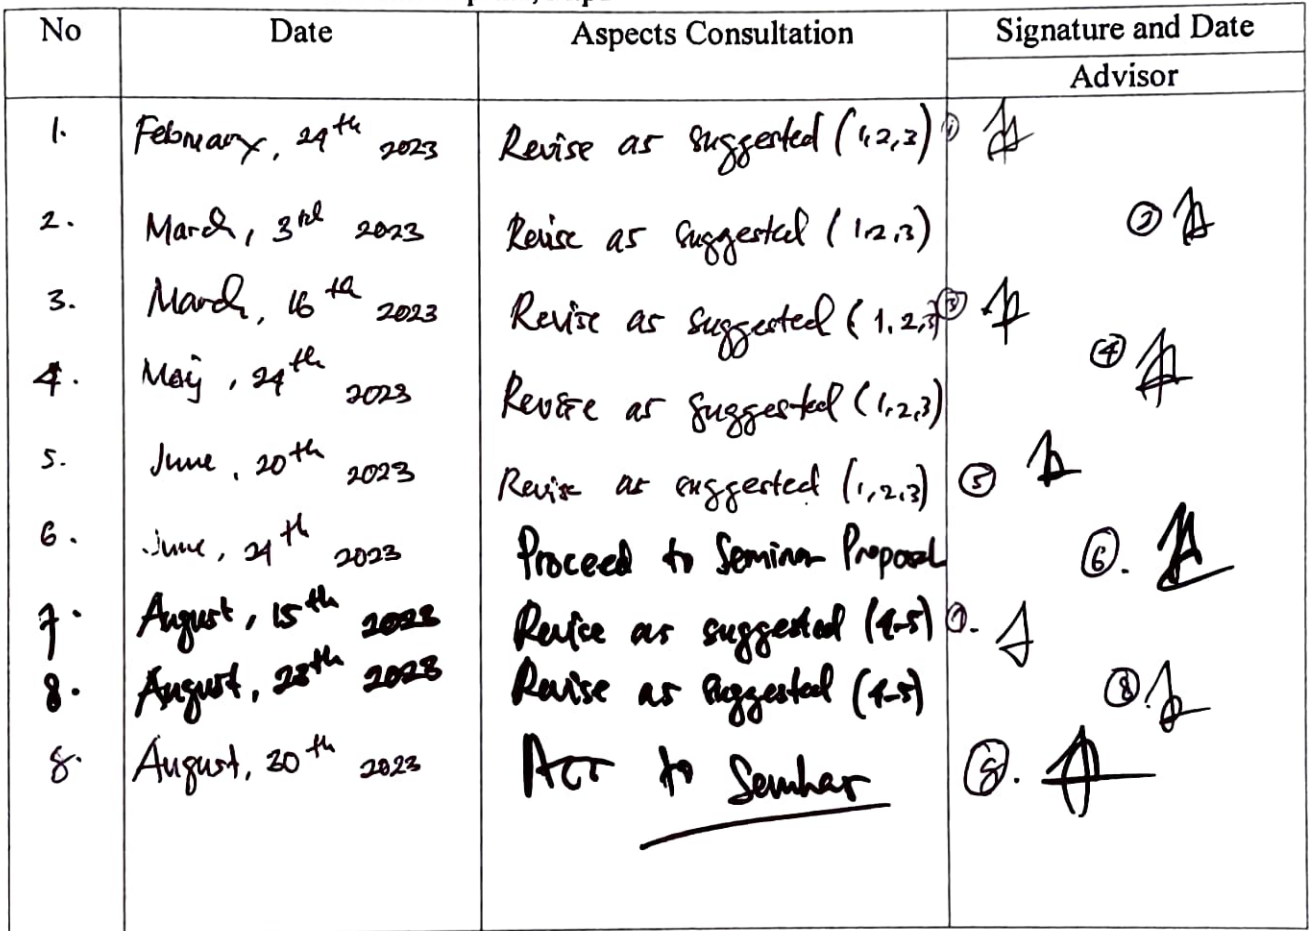 No Date Aspects Consultation Signature and Date
Advisor
1. February, 24th 2023 Revise as suggested (1,2,3) ①
2. March, 3rd 2023 Revise as suggested (1,2,3) ②
3. March, 16th 2023 Revise as suggested (1,2,3) ③
4. May, 24th 2023 Revise as suggested (1,2,3) ④
5. June, 20th 2023 Revise as suggested (1,2,3) ⑤
6. June, 24th 2023 Proceed to Seminar Proposal ⑥.
7. August, 15th 2023 Revise as suggested (4-5) ⑦.
8. August, 28th 2023 Revise as suggested (4-5) ⑧.
8. August, 30th 2023 to Seminar ⑧.